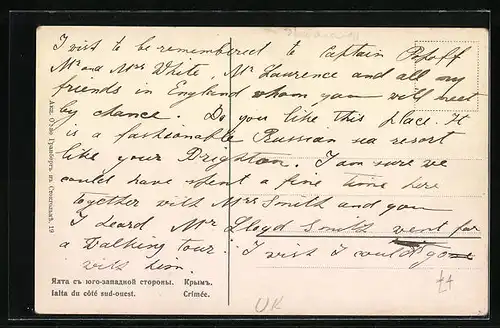 I wish to be remembered to Captain
Mr and Mrs White, Mr Laurence and all my
friends in England whom you will meet
by chance. Do you like this place. It
is a fashionable Russian sea resort
like your Brighton. I am sure we
could have spent a fine time here
together with Mrs Smith and you
I heard Mr Lloyd Smith went for
a walking tour. I wish I could go
with him.
Акц. О-во Гранбергъ въ Стокгольмѣ. 19
Ялта съ юго-западной стороны. Крымъ.
Ialta du côté sud-ouest. Crimée.
UK